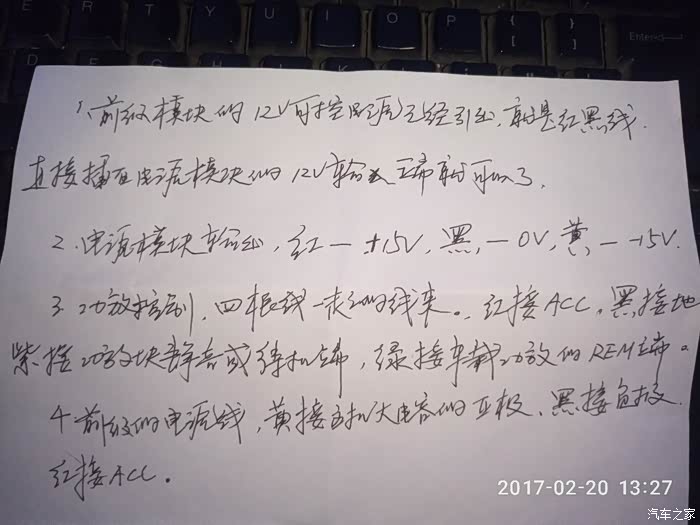 E R T Y U I O P { [ } ] Enter
1、前级模块的12V可控电源已经引出,就是红黑线.
直接插在电源模块的12V输入端就可以了.
2.电源模块输出,红—+15V,黑—0V,黄—-15V.
3.功放控制,四根线一束的线束。红接ACC,黑接地
紫接功放块静音或待机端,绿接车载功放的REM端。
4.前级的电源线,黄接主机大电容的正极、黑接负极
红接ACC。
2017-02-20 13:27
汽车之家